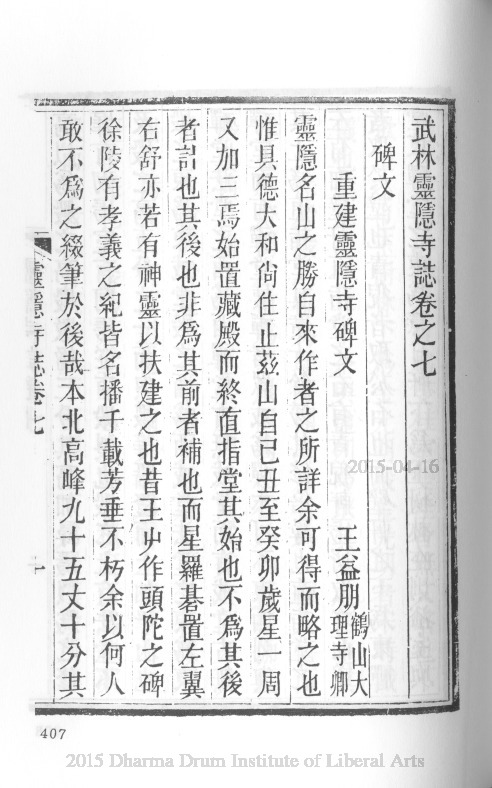 武林靈隱寺誌卷之七
碑文
重建靈隱寺碑文
王益朋鶴山大理寺卿
靈隱名山之勝自來作者之所詳余可得而略之也
惟具德大和尙住止茲山自己丑至癸卯歲星一周
又加三焉始置藏殿而終直指堂其始也不爲其後
者計也其後也非爲其前者補也而星羅碁置左翼
右舒亦若有神靈以扶建之也昔王屮作頭陀之碑
徐陵有孝義之紀皆名播千載芳垂不朽余以何人
敢不爲之綴筆於後哉本北高峰九十五丈十分其
靈隱寺誌卷七
一
2015-04-16
407
2015 Dharma Drum Institute of Liberal Arts